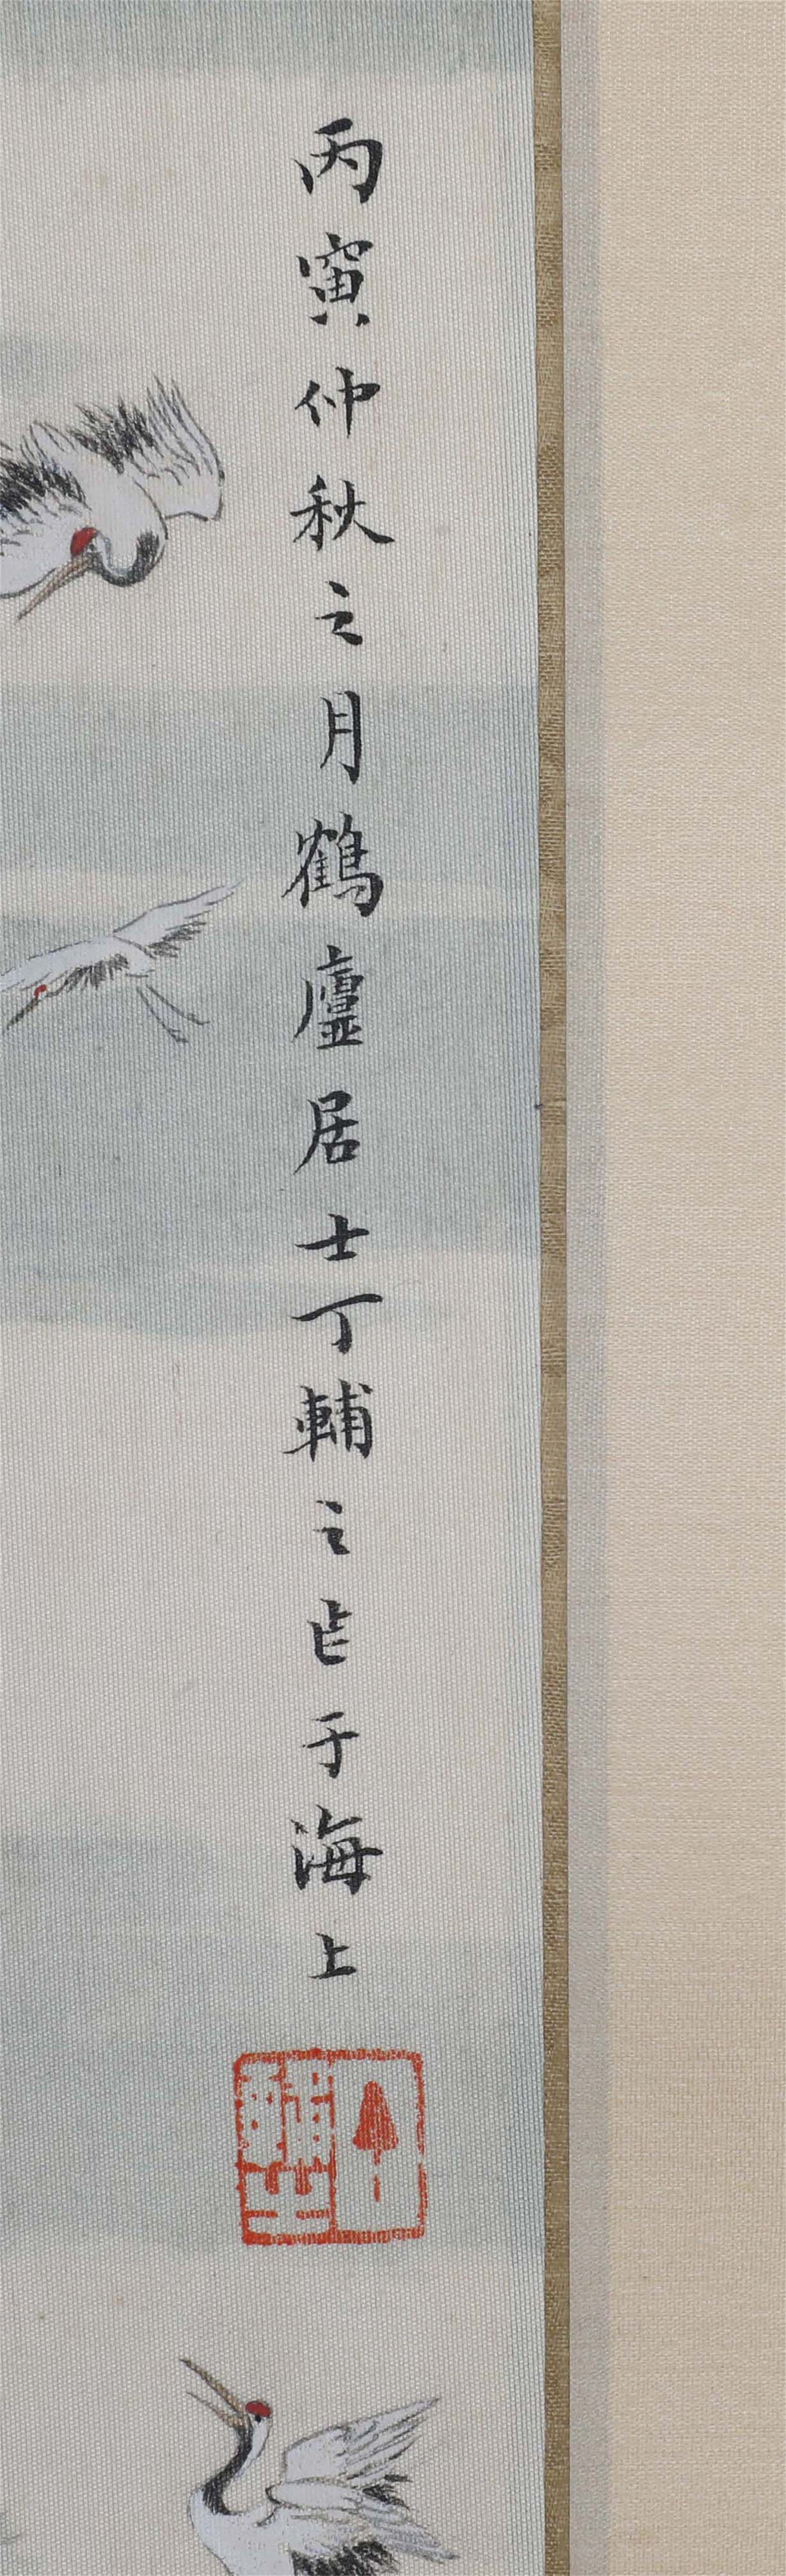 丙寅仲秋之月鶴廬居士丁輔之作于海上
丁輔之